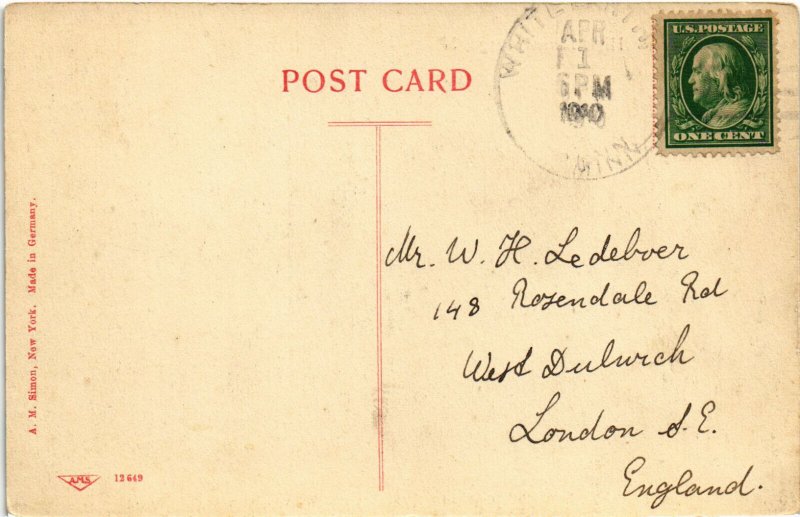 POST CARD
APR
1
6PM
1910
MINN
U.S. POSTAGE
ONE CENT
Mr. W. H. Ledeboer
148 Rosendale Rd
West Dulwich
London S.E.
England.
A. M. Simon, New York. Made in Germany.
A.M.S. 12649